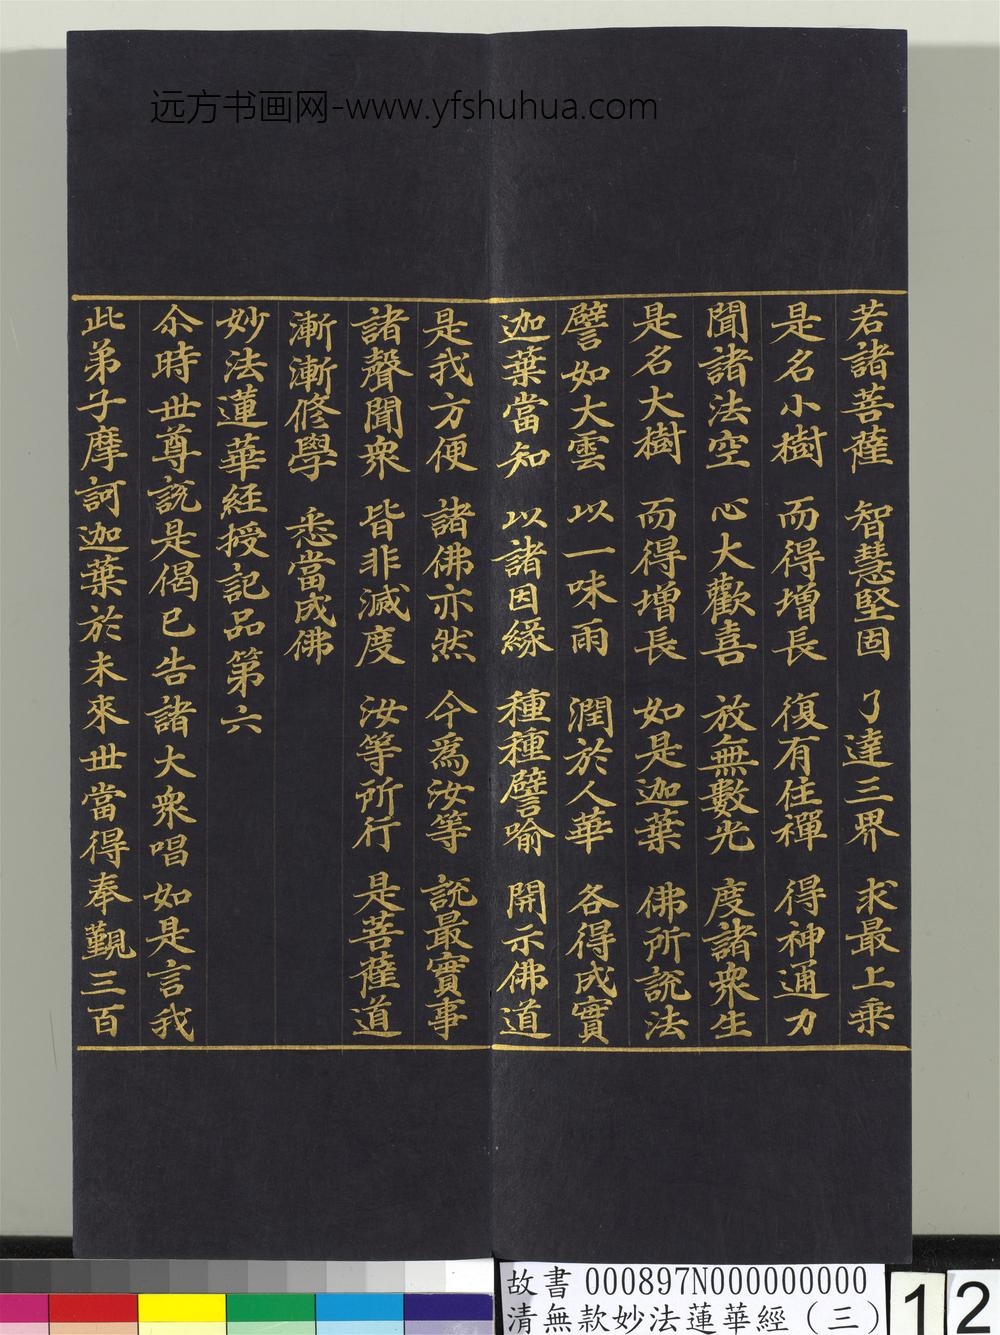 远方书画网-www.yfshuhua.com
若諸菩薩 智慧堅固 了達三界 求最上乗
是名小樹 而得增長 復有住禪 得神通力
聞諸法空 心大歡喜 放無數光 度諸衆生
是名大樹 而得增長 如是迦葉 佛所說法
譬如大雲 以一味雨 潤於人華 各得成實
迦葉當知 以諸因緣 種種譬喻 開示佛道
是我方便 諸佛亦然 今為汝等 說最實事
諸聲聞衆 皆非滅度 汝等所行 是菩薩道
漸漸修學 悉當成佛
妙法蓮華経授記品第六
尒時世尊說是偈已告諸大衆唱如是言我
此弟子摩訶迦葉於未來世當得奉覲三百
故書 000897N000000000
清無款妙法蓮華經（三）
12